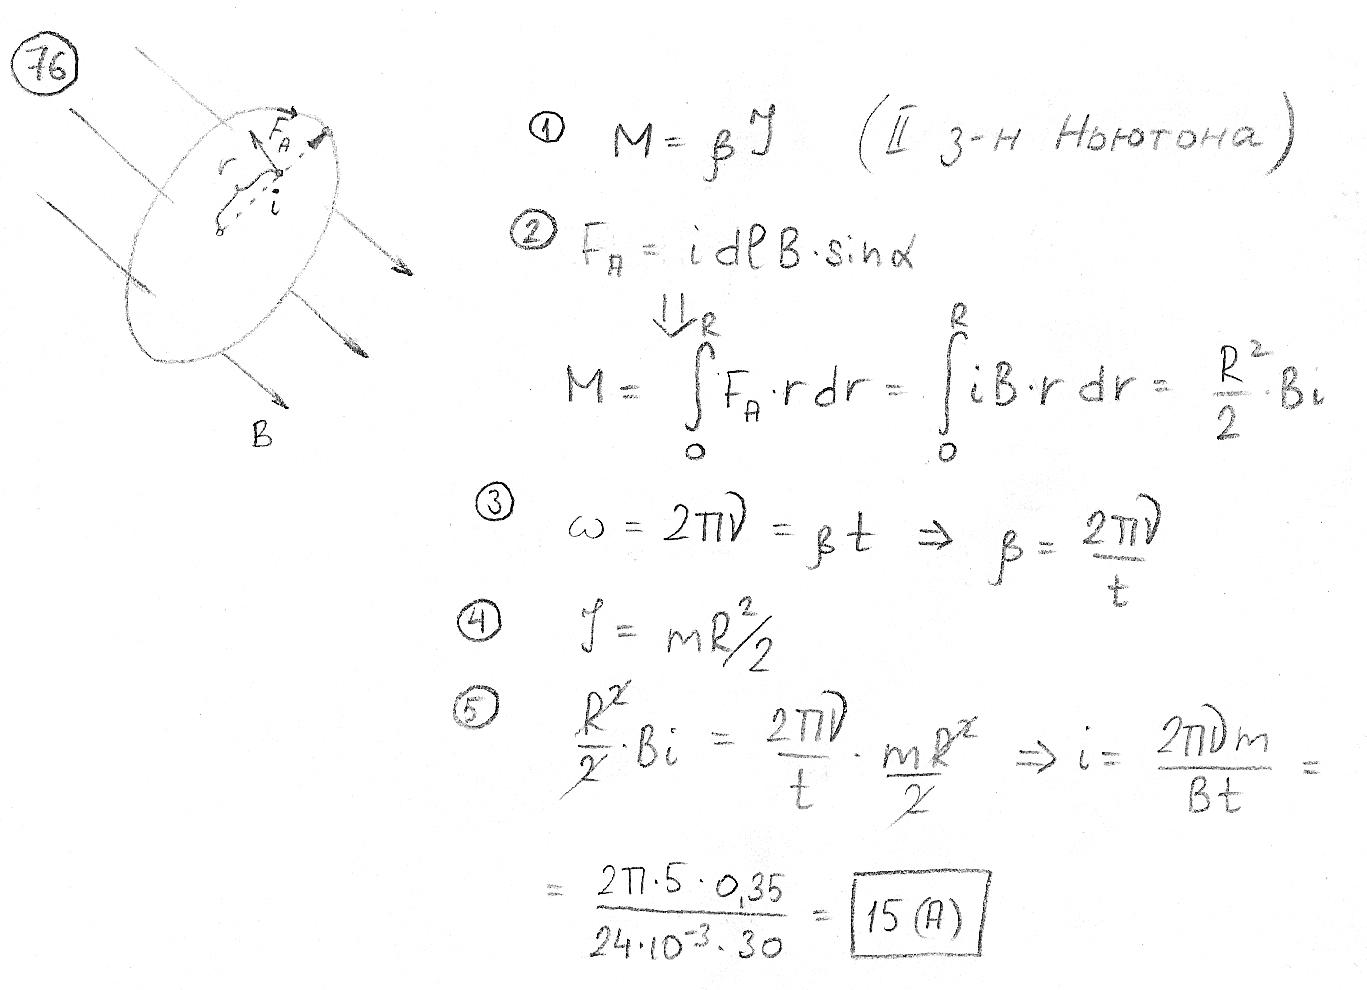 76
F_A
r
i
B
① M = βJ (II з-н Ньютона)
② F_A = i dℓ B · sinα
⇓
M = ∫₀ᴿ F_A · r dr = ∫₀ᴿ iB · r dr = R²/2 · Bi
③ ω = 2πν = βt ⇒ β = 2πν/t
④ J = mR²/2
⑤ R²/2 · Bi = 2πν/t · mR²/2 ⇒ i = 2πνm/Bt =
= 2π·5·0,35/24·10⁻³·30 = 15 (A)